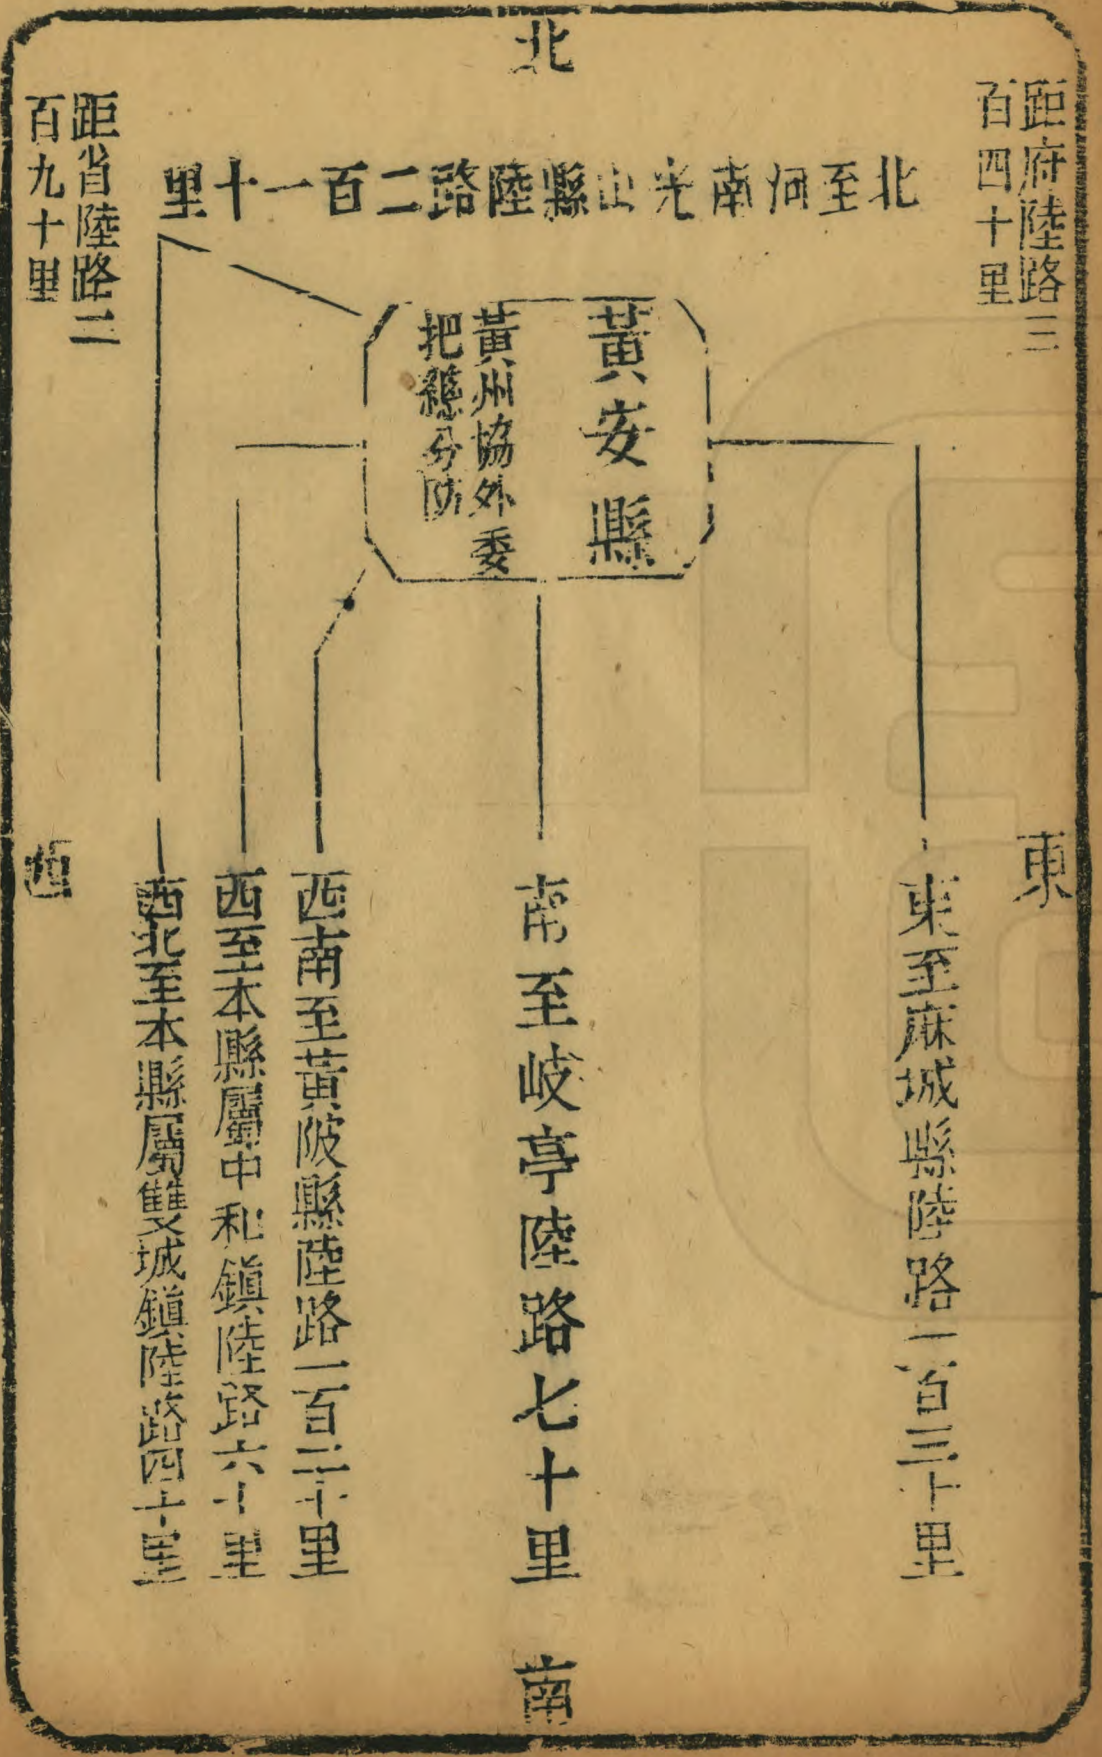 北
距府陸路三
百四十里
北至河南光山縣陸路二百一十里
距省陸路二
百九十里
黃安縣
黃州協外委
把總分防
東
東至麻城縣陸路一百三十里
南至岐亭陸路七十里
西南至黃陂縣陸路一百二十里
西至本縣屬中和鎮陸路六十里
西北至本縣屬雙城鎮陸路四十里
西
南